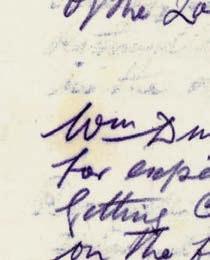 of the Lo
Wm Dun
for expe
Getting C
on the f